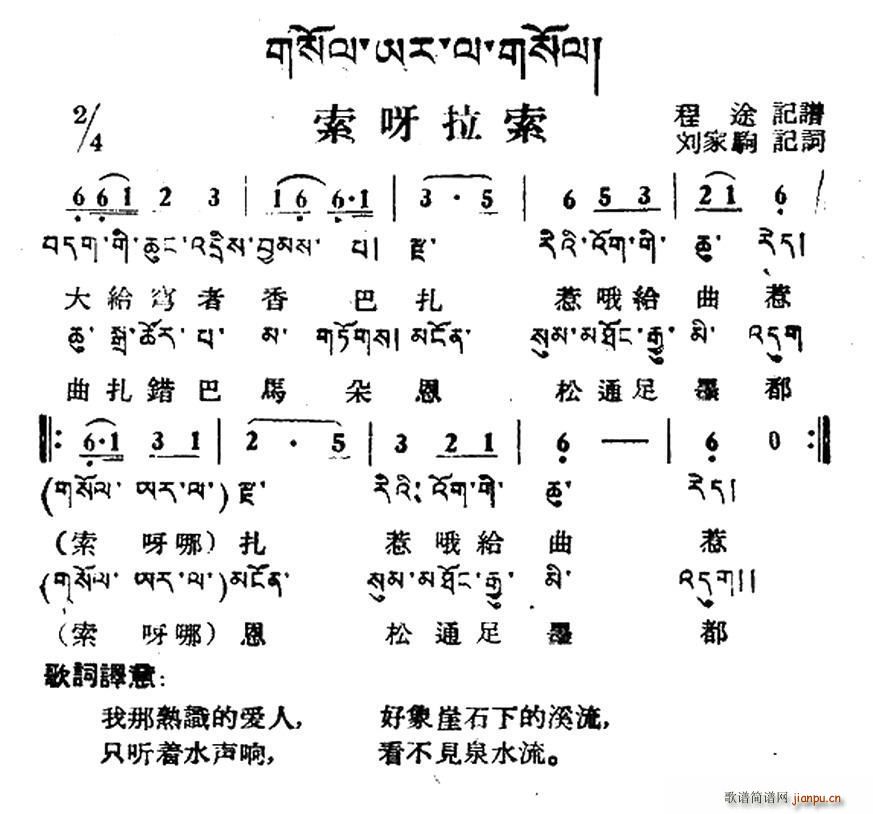 གསོལ་ཨར་ལ་གསོལ།
2/4 索呀拉索 程途 記譜
刘家駒 記詞
6 6 1 2 3 | 1 6 6·1 | 3 · 5 | 6 5 3 | 2 1 6 /
བདག་གི་ཆུང་འདྲིས་བྱམས་ པ། རྫ་ རིའི་འོག་གི་ ཆུ་ རེད།
大給穹者香 巴扎 惹哦給曲惹
ཆུ་ སྒྲ་ཚོར་ པ་ མ་ གཏོགས། མངོན་ སུམ་མཐོང་རྒྱུ་ མི་ འདུག
曲扎錯巴馬 朵恩 松通足墨都
6·1 3 1 | 2 · 5 | 3 2 1 | 6 — | 6 0
(གསོལ་ ཨར་ལ་) རྫ་ རིའི་ འོག་གི་ ཆུ་ རེད།
(索 呀哪) 扎 惹哦給 曲 惹
(གསོལ་ ཨར་ལ་) མངོན་ སུམ་མཐོང་རྒྱུ་ མི་ འདུག།།
(索 呀哪) 恩 松通足 墨 都
歌詞譯意:
我那熟識的爱人, 好象崖石下的溪流,
只听着水声响, 看不見泉水流。
歌谱简谱网 jianpu.cn